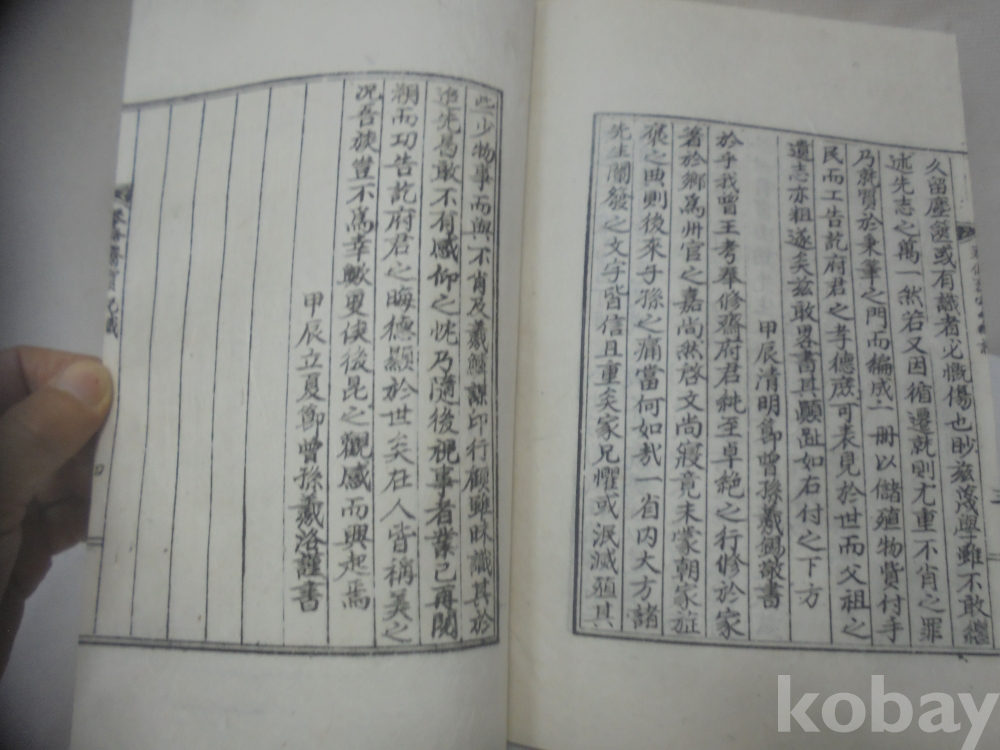 久留塵篋或有識者必慨傷也眇玆蔑學雖不敢繼
述先志之萬一然若又因循遷就則尤重不肖之罪
乃就賢於秉筆之門而編成一冊以儲殖物貲付手
民而工告訖府君之孝德庶可表見於世而父祖之
遺志亦粗遂矣玆敢畧書其顚趾如右付之下方
甲辰淸明節曾孫羲錫敬書
於乎我曾王考奉修齋府君純至卓絶之行修於家
著於鄕爲州官之嘉尙然啓文尙寢竟未蒙朝家旌
褒之典則後來子孫之痛當何如哉一省內大方諸
先生闡發之文字皆信且重矣家兄懼或泯滅殖其
些少物事而與不肖及羲鯨謀印行顧雖昧識其於
追先爲敢不有感仰之忱乃隨後視事者業已再閱
朔而功告訖府君之晦德顯於世矣在人皆稱美之
况吾族豈不爲幸歟更俟後昆之觀感而興起焉
甲辰立夏節曾孫羲洛謹書
kobay